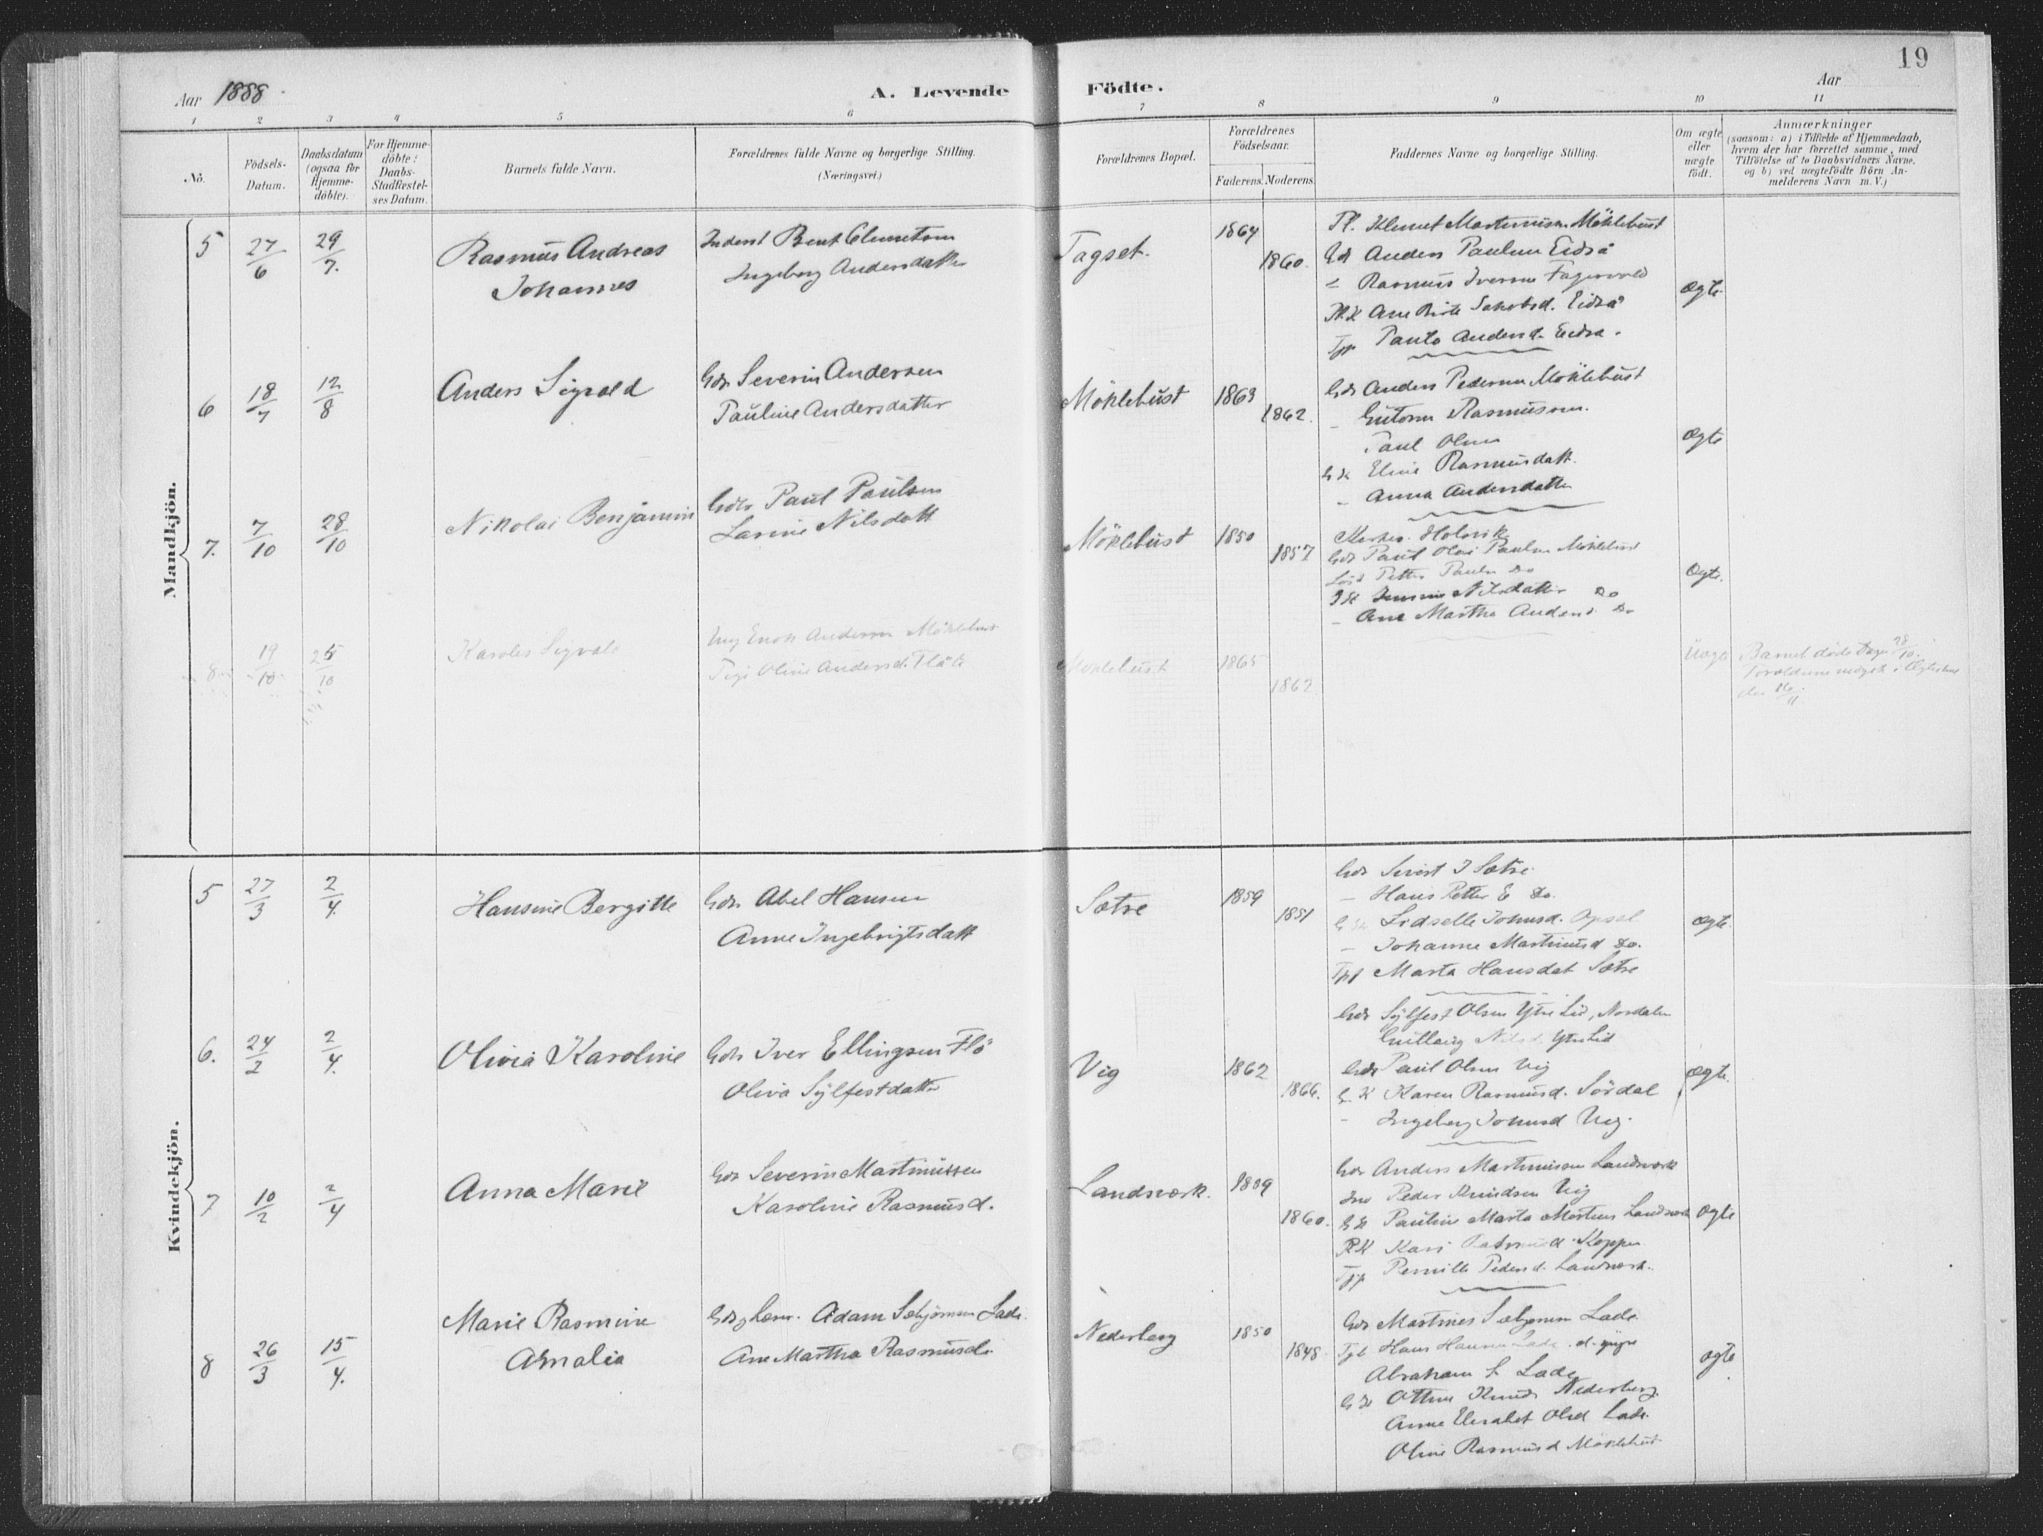 19
Aar 1888.
A. Levende Födte.
Aar
1 2 3 4 5 6 7 8 9 10 11
No.
Födsels-Datum.
Daabsdatum (ogsaa for Hjemme-döbte).
For Hjemme-döbte: Daabs-Stadfæstel-ses Datum.
Barnets fulde Navn.
Forældrenes fulde Navne og borgerlige Stilling. (Næringsvei.)
Forældrenes Bopæl.
Forældrenes Födselsaar.
Faderens. Moderens.
Faddernes Navne og borgerlige Stilling.
Om ægte eller uægte født.
Anmærkninger (saasom: a) i Tilfælde af Hjemmedaab, hvem der har forrettet samme, med Tilföielse af to Daabsvidners Navne. og b) ved uægtefödte Börn An-melderens Navn m. V.)
Mandkjön.
5 27/6 29/7.
Rasmus Andreas
Johannes
Inderst Bent Clemetsen
Ingeborg Andersdatter
Tagset.
1864
1860.
P. Klemet Martinusen Möklebust
Gdr Anders Paulsen Eidså
Rasmus Iversen Fagervold
Ane Birte Jakobsd. Eidså
Anders d. Eidså.
Ægte
6 18/7 12/8
Anders Sigvald
Gdr Severin Andersen
Pauline Andersdatter
Möklebust
1863
1862.
Gdr Anders Pedersen Möklebust
Gutorm Rasmussen.
Paul Olsen
G K Eline Rasmusdatt.
- Anna Andersdatter
Ægte
7. 7/10 28/10
Nikolai Benjamin
Gdr Paul Paulsen
Larine Nilsdatt
Möklebust
1850
1857
Gdr Paul Olai Paulsen Möklebust
Petter Paulsen Do
Nilsdatter Do
- Ane Martha Anders d. Do
Ægte.
8 19/10 28/10
Karoles Sigvald
Ung Enok Andersen Möklebust
Pige Oline Andersd. Flåte
Möklebust
1865
1862
Uægte
Barnet döde 28/10.
Kvindekjön.
5 27/3 2/4.
Hansine Bergitte
Gdr. Abel Hansen
Anne Ingebrigtsdatt
Sætre
1859
1851
Gdr Sivert J Sætre
- Hans Petter E Do.
G K Lidselle Johnsd. Opsal
- Johanne Martinusd Do.
Marta Hansdat Sætre
Ægte
6. 24/2 2/4.
Olivia Karoline
Gdr Iver Ellingsen Flö
Oliva Sylfestdatter
Vig
1862
1866.
Gdr Sylfest Olsen Ytre Lid, Nordalen
Nilsd. Ytre Lid
Gdr Paul Olsen Vig
G. K Karen Rasmusd. Sördal
- Ingeborg Johnsd Vig.
Ægte.
7 10/2 2/4
Anna Marie
Gdr Severin Martinussen
Karoline Rasmusd.
Landsværk.
1859
1860.
Gdr Anders Martinusen Landsværk
Peder Knudsen Vig
G K Pauline Marta Mortens Landsværk
Kari Koppen
Pernille Pedersd. Landsværk.
Ægte
8 26/3 15/4.
Marie Rasmine
Amalia
Adam Sebjörnsen Lade.
Ane Martha Rasmusd.
Nederberg
1850
1848.
Gdr Martines Lade
Hans Hansen Lade d. yngre
Abraham S Lade
G K Nederberg.
Anne Elisabet Olsd Lade.
Oline Rasmusd Möklebust
Ægte